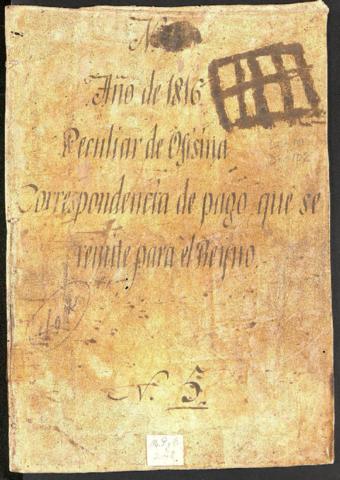 Nº
Año de 1816
Peculiar de Oficina
Correspondencia de pago que se
remite para el Reyno.
N. 5